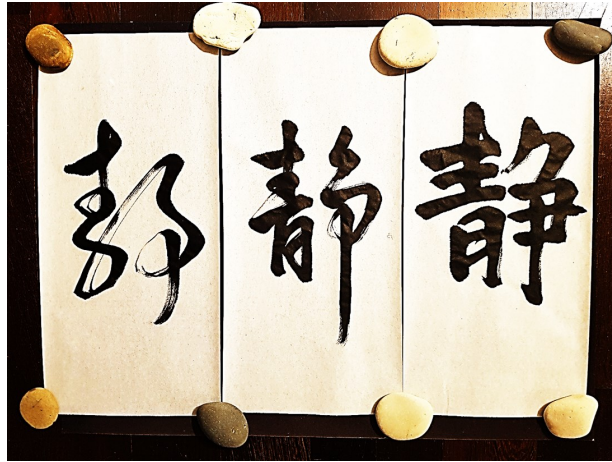 静 静 静